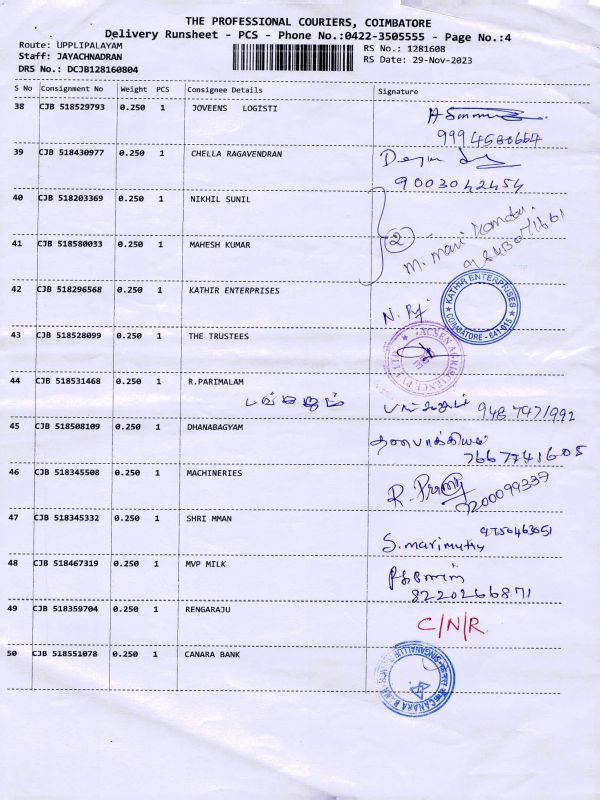 THE PROFESSIONAL COURIERS, COIMBATORE
Delivery Runsheet - PCS - Phone No.:0422-3505555 - Page No.:4
Route: UPPLIPALAYAM
RS No.: 1281608
Staff: JAYACHNADRAN
RS Date: 29-Nov-2023
DRS No.: DCJB128160804
S No Consignment No Weight PCS Consignee Details Signature
38 CJB 518529793 0.250 1 JOVEENS LOGISTI
9994580664
39 CJB 518430977 0.250 1 CHELLA RAGAVENDRAN
9003042454
40 CJB 518203369 0.250 1 NIKHIL SUNIL
2
41 CJB 518580033 0.250 1 MAHESH KUMAR
M. Mari
42 CJB 518296568 0.250 1 KATHIR ENTERPRISES
KATHIR ENTERPRISES
COIMBATORE - 641 015
43 CJB 518528099 0.250 1 THE TRUSTEES
44 CJB 518531468 0.250 1 R.PARIMALAM
9487471992
45 CJB 518508109 0.250 1 DHANABAGYAM
தனபாக்கியம்
7667741605
46 CJB 518345508 0.250 1 MACHINERIES
7200099339
47 CJB 518345332 0.250 1 SHRI MMAN
9750463051
S. marimuthu
48 CJB 518467319 0.250 1 MVP MILK
8220266871
49 CJB 518359704 0.250 1 RENGARAJU
C/N/R.
50 CJB 518551078 0.250 1 CANARA BANK